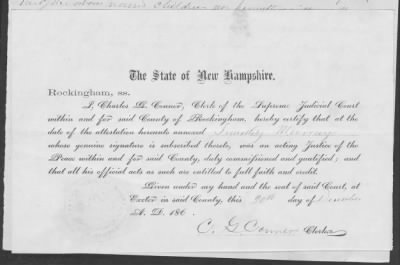 children
The State of New Hampshire.
Rockingham, ss.
I, Charles G. Conner, Clerk of the Supreme Judicial Court
within and for said County of Rockingham, hereby certify that at
the date of the attestation hereunto annexed Timothy Murray
whose genuine signature is subscribed thereto, was an acting Justice of the
Peace within and for said County, duly commissioned and qualified; and
that all his official acts as such are entitled to full faith and credit.
Given under my hand and the seal of said Court, at
Exeter in said County, this 20th day of December
A. D. 186 .
C. G. Conner Clerk.